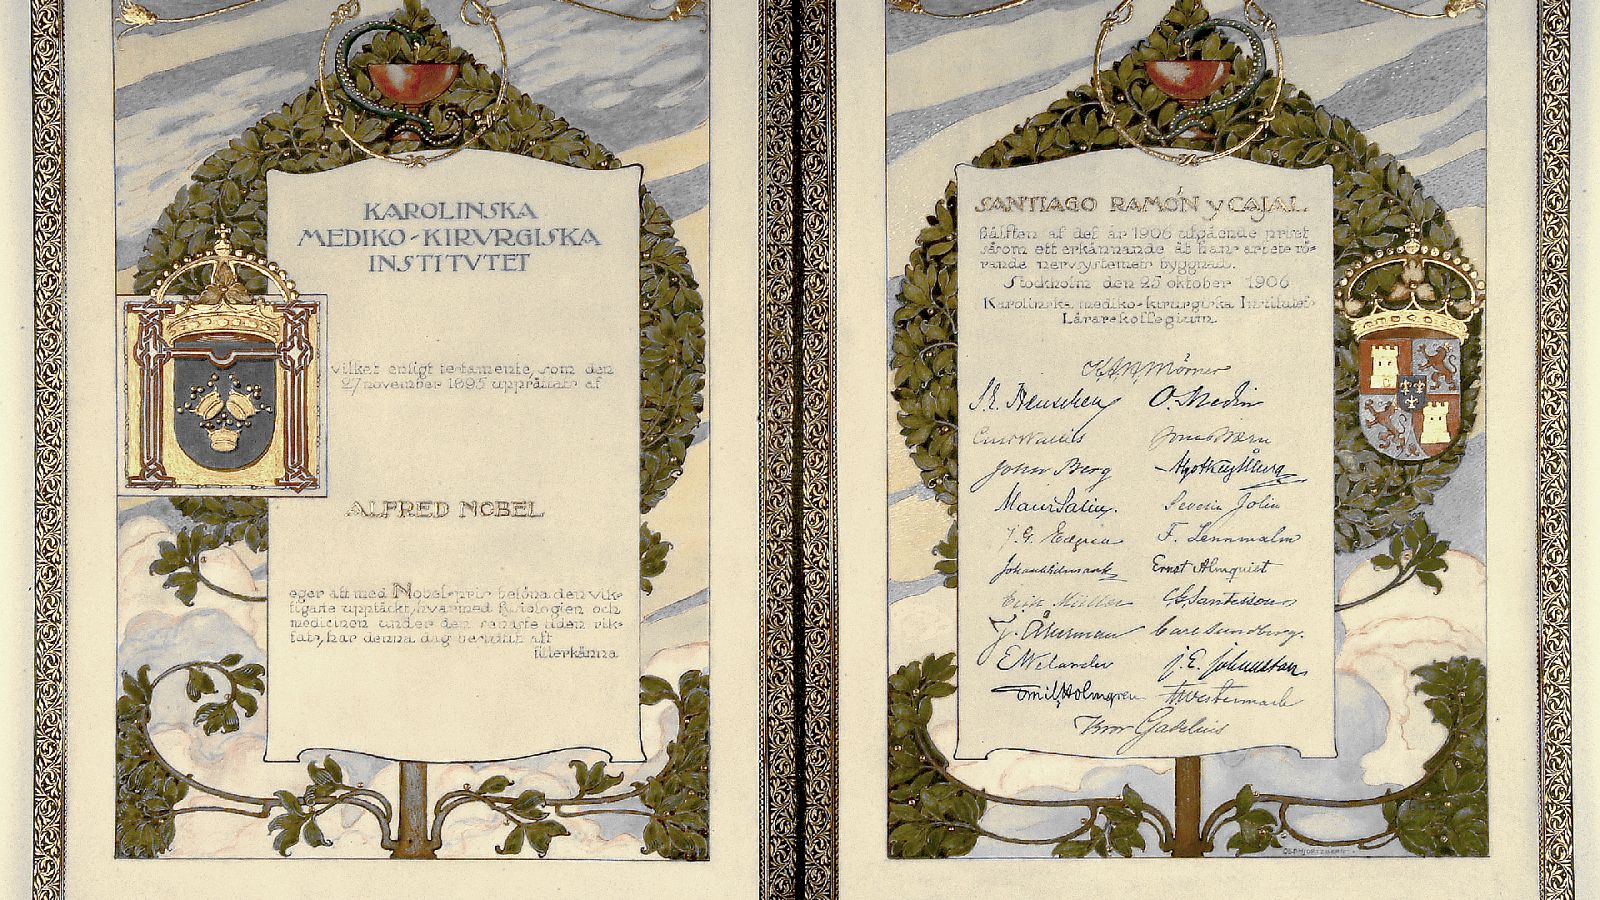 KAROLINSKA
MEDIKO-KIRVRGISKA
INSTITVTET
vilket enligt testamente, som den
27 november 1895 upprättats af
ALFRED NOBEL
eger att med Nobelpris belöna den vik-
tigaste upptäckt, hvarmed fysiologien och
medicinen under den senaste tiden rik-
tats, har denna dag beslutit att
tillerkänna
SANTIAGO RAMÓN y CAJAL
hälften af det år 1906 utgående priset
såsom ett erkännande åt hans arbete rö-
rande nervsystemets byggnad.
Stockholm den 25 oktober 1906
Karolinska mediko-kirurgiska Institutets
Lärarekollegium.
K.A.H. Mörner
S.E. Henschen O. Medin
Curt Wallis
John Berg
Severin Jolin
J.G. Edgren F. Lennmalm
Johan Widmark Ernst Almquist
Erik Müller C.G. Santesson
J. Åkerman Carl Sundberg.
E Welander J.E. Johansson
Emil Holmgren F Westermark
Bror Gadelius